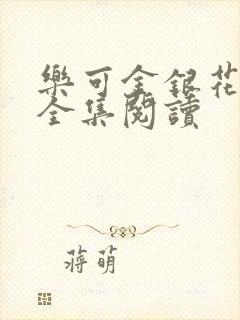 樂可金銀花
全集閱讀
蔣萌